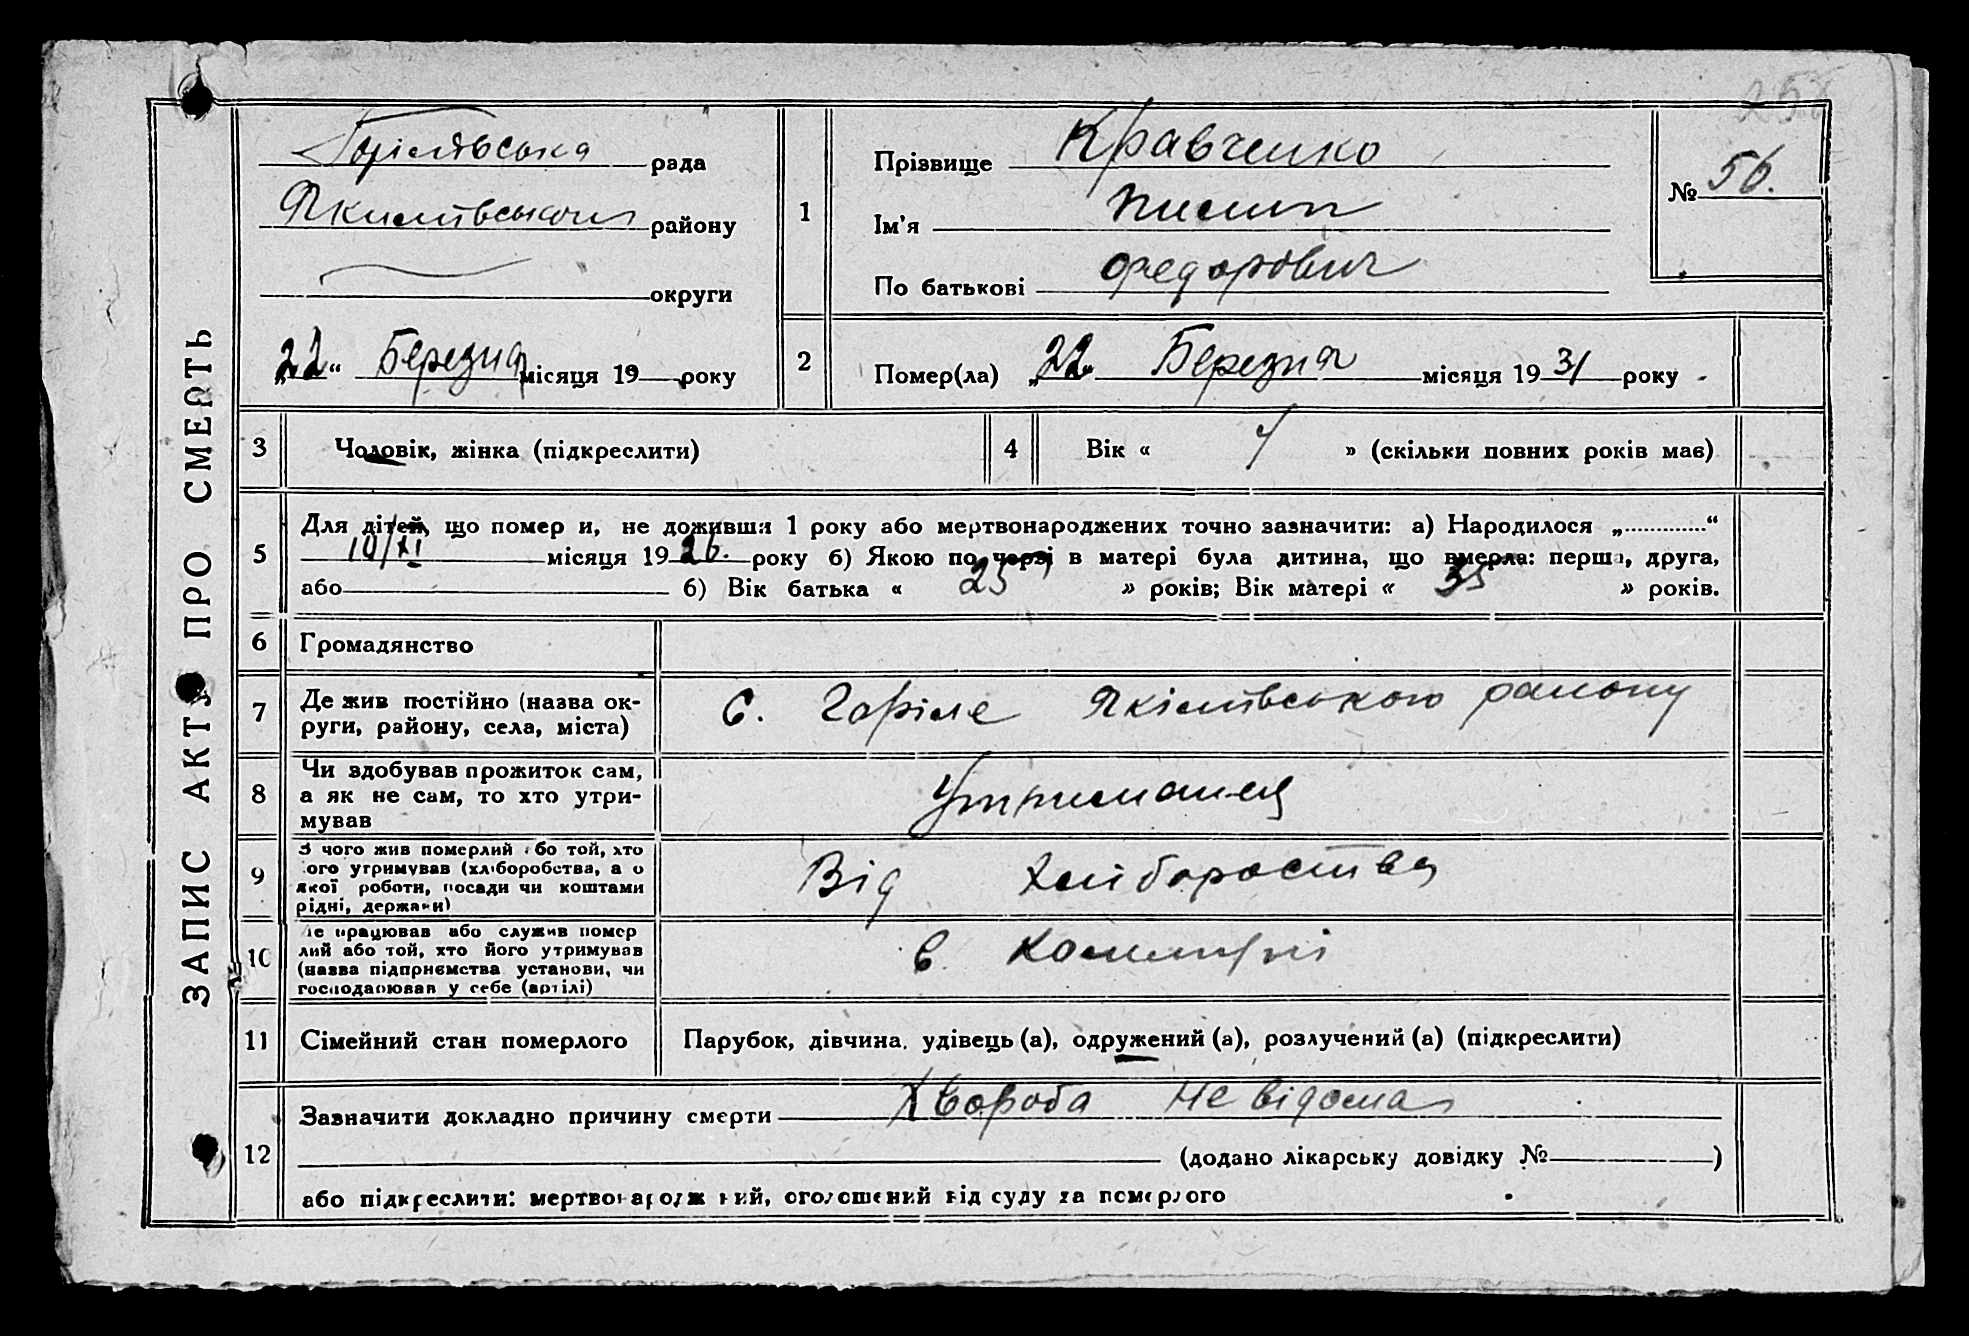 256
ЗАПИС АКТУ ПРО СМЕРТЬ
Горілівська рада
Якимівського району
округи
„22“ Березня місяця 19 року
1
Прізвище Кравченко
Ім'я Пилип
По батькові Федорович
№ 56.
2
Помер(ла) „22“ Березня місяця 1931 року
3
Чоловік, жінка (підкреслити)
4
Вік « 4 » (скільки повних років має)
5
Для дітей, що померли, не доживши 1 року або мертвонароджених точно зазначити: а) Народилося „.............“
10/XI місяця 1926. року б) Якою по черзі в матері була дитина, що вмерла: перша, друга,
або б) Вік батька « 25 » років; Вік матері « 35 » років.
6
Громадянство
7
Де жив постійно (назва ок-
руги, району, села, міста)
С. Горіле Якімівського району
8
Чи здобував прожиток сам,
а як не сам, то хто утри-
мував
Утримався
9
З чого жив померлий або той, хто
його утримував (хліборобства, а о
якої роботи, посади чи коштами
рідні, держави)
Від хліборобства
10
Де працював або служив помер
лий або той, хто його утримував
(назва підприємства установи, чи
господарював у себе (артілі)
В
11
Сімейний стан померлого
Парубок, дівчина, удівець (а), одружений (а), розлучений (а) (підкреслити)
12
Зазначити докладно причину смерти Хвороба не відома
(додано лікарську довідку № )
або підкреслити: мертвонароджений, оголошений від суду за померлого